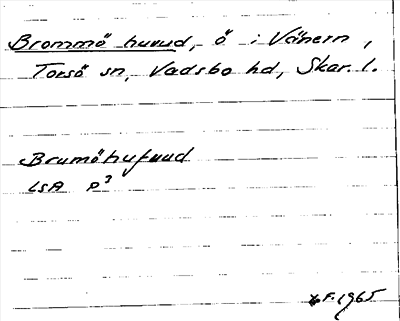 Brommö huvud, ö i Vänern,
Torsö sn, Vadsbo hd, Skar. l.
Brumöhufvud
LSA P³
F. 1965